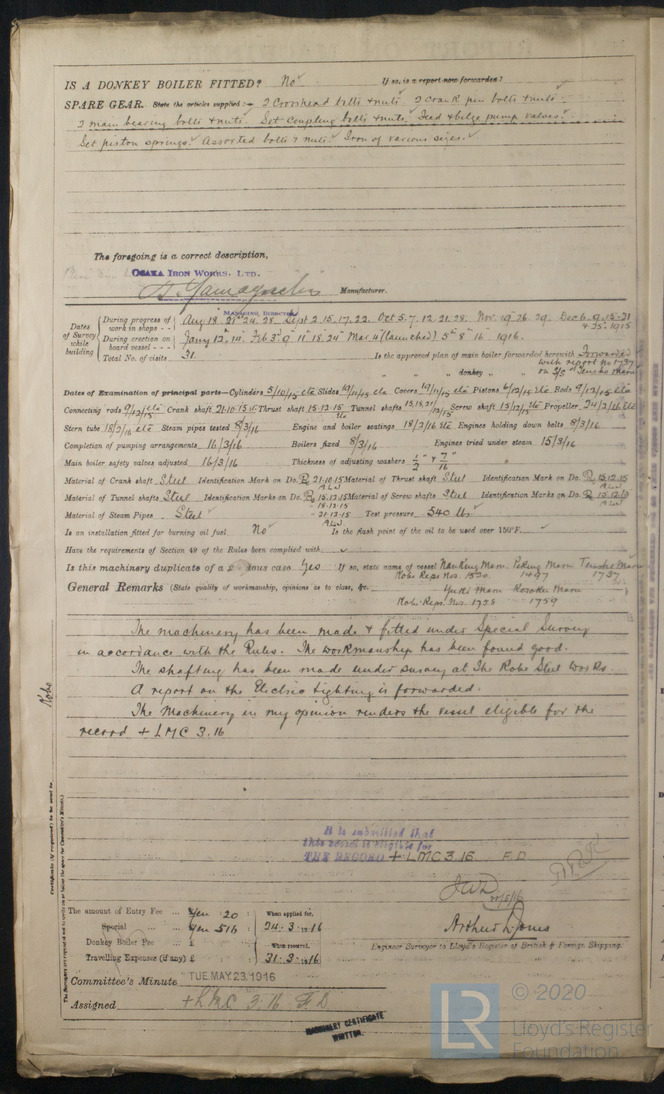 IS A DONKEY BOILER FITTED? No If so, is a report now forwarded?
SPARE GEAR. State the articles supplied:— 2 Crosshead bolts & nuts 2 crank pin bolts & nuts
2 main bearing bolts & nuts. Set coupling bolts & nuts. Feed & bilge pump valves.
Set piston springs. Assorted bolts & nuts. Iron of various sizes.
The foregoing is a correct description,
OSAKA IRON WORKS, LTD.
Manufacturer.
MANAGING DIRECTOR
Dates of Survey while building
During progress of work in shops - - Aug 18. 21. 24. 28. Sept 2. 15. 17. 22. Oct 5. 7. 12. 21. 28. Nov. 19. 26. 29. Dec 6. 9. 13. 21 & 25. 1915
During erection on board vessel - - - Jany 12. 14. Feb 3. 9. 11. 18. 24. Mar. 4 (launched) 5th 8th 16th 1916.
Total No. of visits 31. Is the approved plan of main boiler forwarded herewith Forwarded with report No 1737
" " " donkey " " " on
Dates of Examination of principal parts—Cylinders 5/10/15 etc Slides 19/11/15 etc Covers 19/11/15 etc Pistons 6/12/15 etc Rods 9/12/15 etc
Connecting rods 9/12/15 etc Crank shaft 21.10.15 Thrust shaft 15.12.15 Tunnel shafts 15,18,21/12/15 Screw shaft 13/12/15 etc Propeller 24/2/16 etc
Stern tube 18/2/16 etc Steam pipes tested 8/3/16 Engine and boiler seatings 18/2/16 etc Engines holding down bolts 8/3/16
Completion of pumping arrangements 16/3/16 Boilers fixed 8/3/16 Engines tried under steam 15/3/16
Main boiler safety valves adjusted 16/3/16 Thickness of adjusting washers 1/2" & 7/16"
Material of Crank shaft Steel Identification Mark on Do. 21.10.15 ALJ Material of Thrust shaft Steel Identification Mark on Do. 15.12.15 ALJ
Material of Tunnel shafts Steel Identification Marks on Do. 15.12.15 Material of Screw shafts Steel Identification Marks on Do. ALJ
- 18.12.15
Material of Steam Pipes Steel - 21.12.15 ALJ Test pressure 540 lbs
Is an installation fitted for burning oil fuel No Is the flash point of the oil to be used over 150°F.
Have the requirements of Section 49 of the Rules been complied with
Is this machinery duplicate of a previous case Yes If so, state name of vessel Nanking Maru Peking Maru
Kobe Reps Nos. 1497 1737
General Remarks (State quality of workmanship, opinions as to class, &c. Maru Maru
Kobe Reps. Nos. 1738 1759
The machinery has been made & fitted under Special Survey
in accordance with the Rules. The workmanship has been found good.
The shafting has been made under survey at the Kobe Steel Works.
A report on the Electric Lighting is forwarded.
The Machinery in my opinion renders the vessel eligible for the
record + LMC 3.16
It is submitted that
this vessel is eligible for
THE RECORD + LMC 3.16 F.D
The amount of Entry Fee ... Yen 20 : When applied for,
Special ... Yen 516 : 24.3.1916
Donkey Boiler Fee ... £ : When received,
Travelling Expenses (if any) £ : 31.3.1916
Arthur L. Jones
Engineer Surveyor to Lloyd's Register of British & Foreign Shipping.
Committee's Minute TUE.MAY.23.1916
Assigned + LMC 3.16 F.D
MACHINERY CERTIFICATE
WRITTEN.
Kobe
Certificate (if required) to be sent to
LR © 2020
Lloyd's Register
Foundation